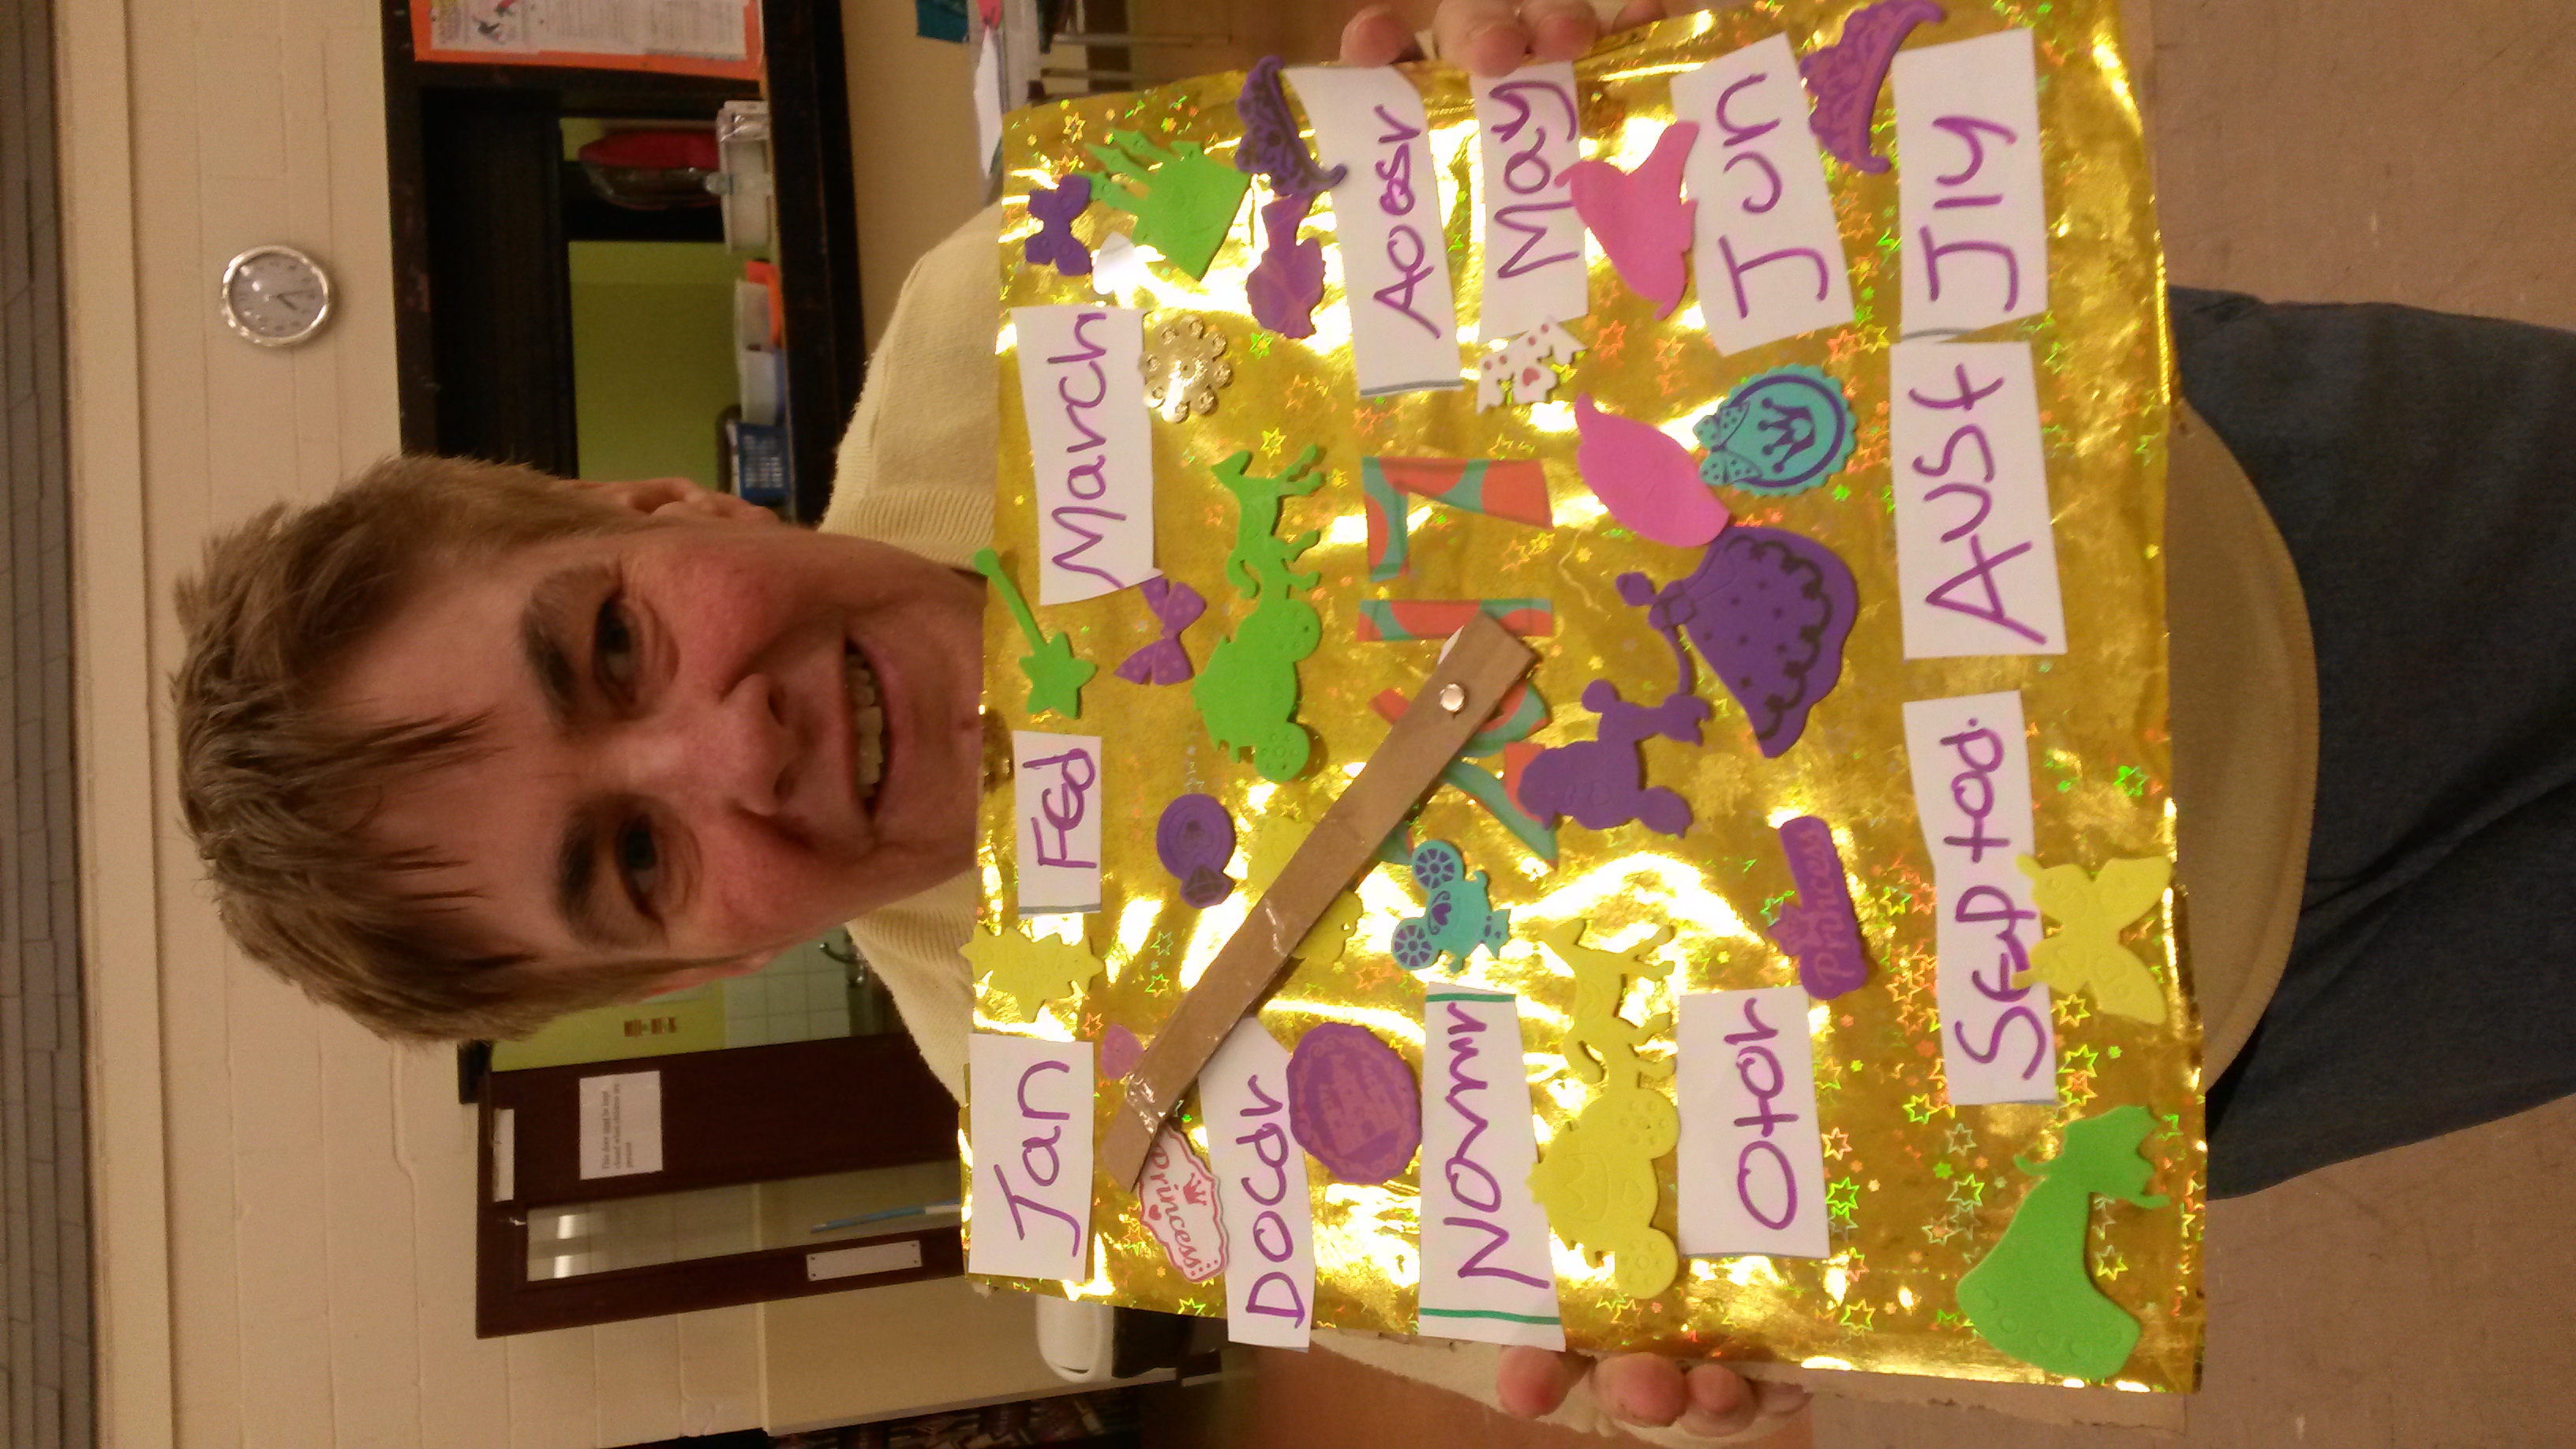 This door must be kept
closed when children are
present
Jan
Fed
March
Princess
Docdr
Aoosr
Novmr
2017
May
Otor
Jun
Princess
Septod.
Ausf
Jly